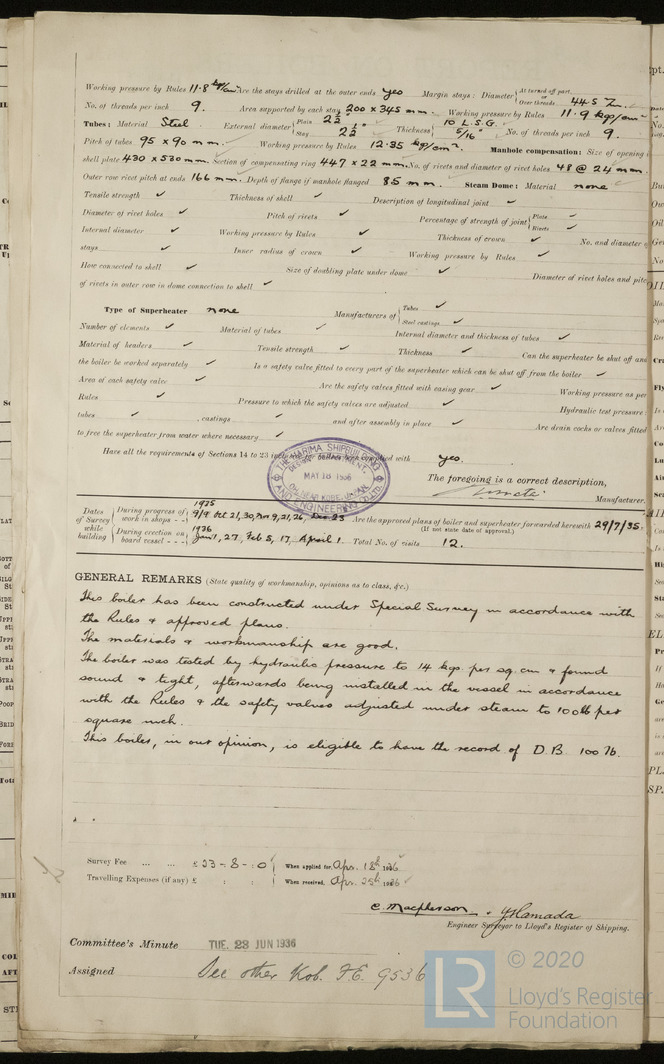 Working pressure by Rules 11.8 kg/cm² Are the stays drilled at the outer ends yes Margin stays: Diameter {At turned off part, or Over threads 44.5
No. of threads per inch 9. Area supported by each stay 200 x 345 mm. Working pressure by Rules 11.9 kgs/cm²
Tubes: Material Steel External diameter {Plain 2½" Stay 2½" Thickness {10 L.S.G. 5/16" No. of threads per inch 9.
Pitch of tubes 95 x 90 mm. Working pressure by Rules 12.35 kg/cm². Manhole compensation: Size of opening
shell plate 430 x 530 mm. Section of compensating ring 447 x 22 mm. No. of rivets and diameter of rivet holes 48 @ 24 mm.
Outer row rivet pitch at ends 166 mm. Depth of flange if manhole flanged 85 mm. Steam Dome: Material none
Tensile strength ✓ Thickness of shell ✓ Description of longitudinal joint ✓
Diameter of rivet holes ✓ Pitch of rivets ✓ Percentage of strength of joint {Plate ✓ Rivets ✓
Internal diameter ✓ Working pressure by Rules ✓ Thickness of crown ✓ No. and diameter of
stays ✓ Inner radius of crown ✓ Working pressure by Rules ✓
How connected to shell ✓ Size of doubling plate under dome ✓ Diameter of rivet holes and pitch
of rivets in outer row in dome connection to shell ✓
Type of Superheater none Manufacturers of {Tubes ✓ Steel castings ✓
Number of elements ✓ Material of tubes ✓ Internal diameter and thickness of tubes ✓
Material of headers ✓ Tensile strength ✓ Thickness ✓ Can the superheater be shut off and
the boiler be worked separately ✓ Is a safety valve fitted to every part of the superheater which can be shut off from the boiler ✓
Area of each safety valve ✓ Are the safety valves fitted with easing gear ✓ Working pressure as per
Rules ✓ Pressure to which the safety valves are adjusted ✓ Hydraulic test pressure:
tubes ✓ , castings ✓ and after assembly in place ✓ Are drain cocks or valves fitted
to free the superheater from water where necessary ✓
Have all the requirements of Sections 14 to 23 complied with yes.
THE HARIMA SHIPBUILDING AND ENGINEERING CO. LTD.
DESIGN DEPARTMENT,
MAY 18 1936
OH, NEAR KOBE, JAPAN
The foregoing is a correct description,
Manufacturer.
Dates of Survey while building {During progress of work in shops - - 1935 9/9 Oct 21, 30, Nov 9, 21, 26, Dec 23 Are the approved plans of boiler and superheater forwarded herewith 29/7/35.
(If not state date of approval.)
During erection on board vessel - - - 1936 Jan 1, 27, Feb 5, 17, April 1 Total No. of visits 12.
GENERAL REMARKS (State quality of workmanship, opinions as to class, &c.)
This boiler has been constructed under Special Survey in accordance with
the Rules & approved plans.
The materials & workmanship are good.
The boiler was tested by hydraulic pressure to 14 kgs. per sq. cm & found
sound & tight, afterwards being installed in the vessel in accordance
with the Rules & the safety valves adjusted under steam to 100 lb per
square inch.
This boiler, in our opinion, is eligible to have the record of D.B 100 lb.
Survey Fee ... ... £ 23 - 8 - 0 When applied for, Apr. 18th 1936
Travelling Expenses (if any) £ : : When received, Apr. 25th 1936
C. Macpherson & Y. Hamada
Engineer Surveyor to Lloyd's Register of Shipping.
Committee's Minute TUE. 23 JUN 1936
Assigned See other Kob. F.E. 9536
LR
© 2020
Lloyd's Register
Foundation